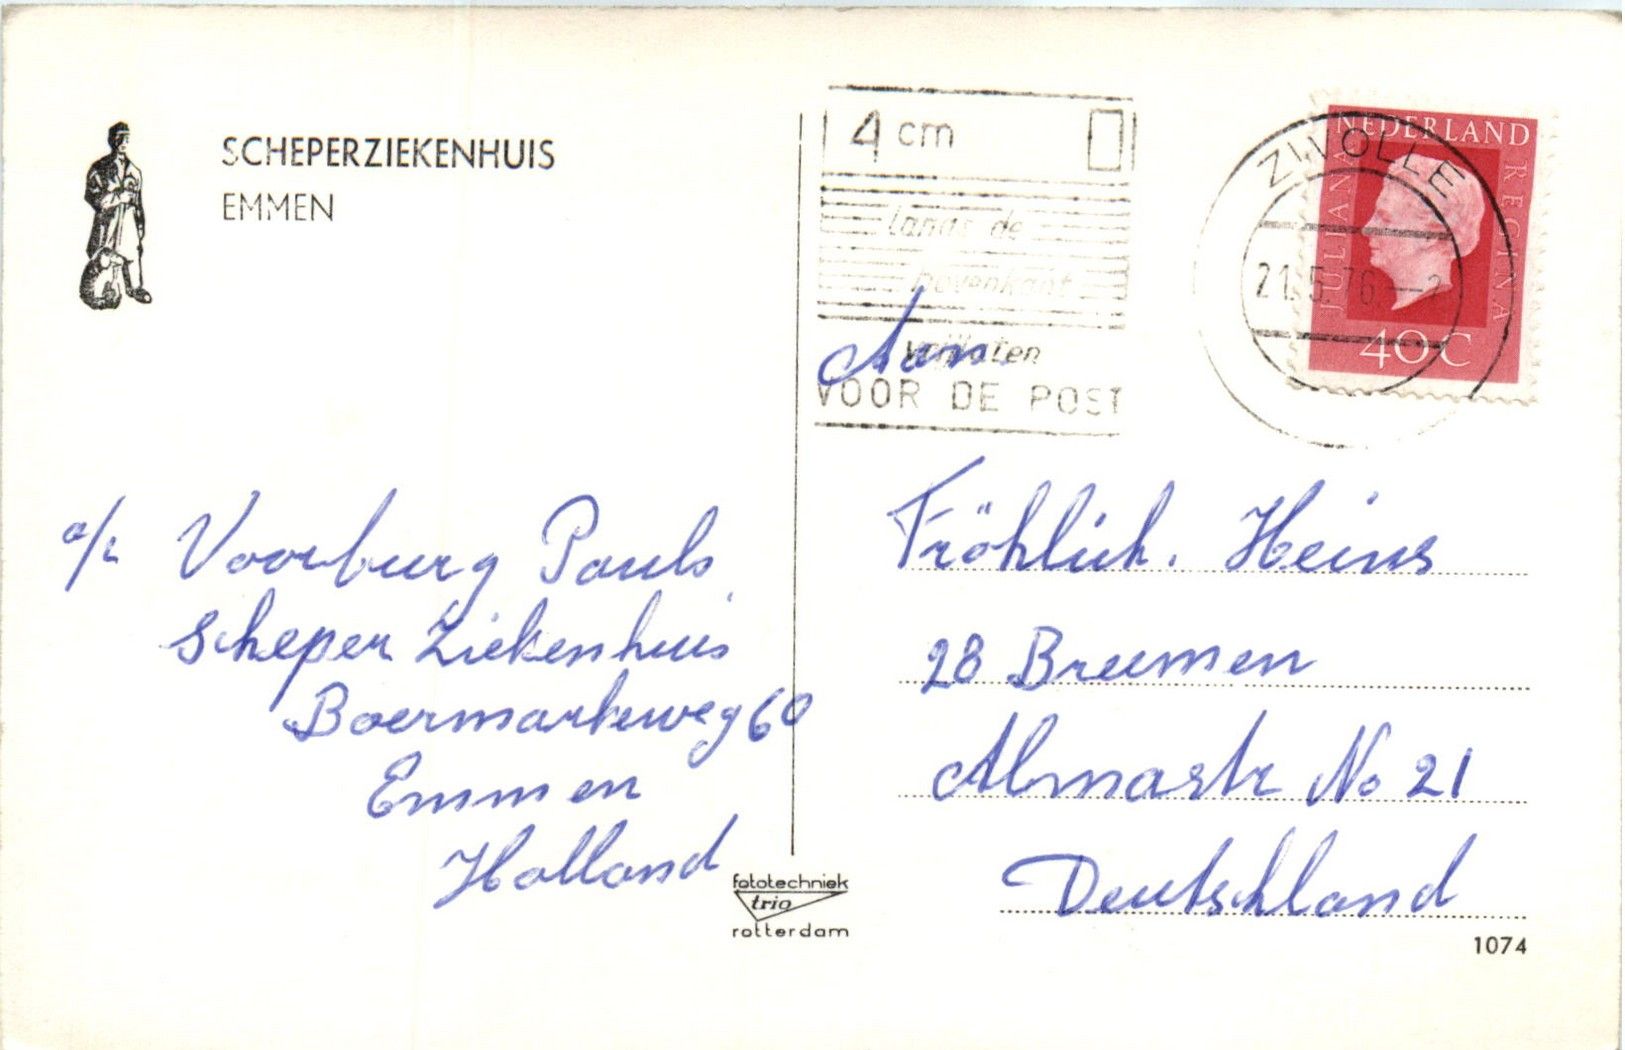 SCHEPERZIEKENHUIS
EMMEN
4 cm
langs de
bovenkant
vrijlaten
VOOR DE POST
ZWOLLE
21.5.76.—2
NEDERLAND
JULIANA
REGINA
40C
Aan
a/z Voorburg Pauls
Scheper Ziekenhuis
Boermarkeweg 60
Emmen
Holland
Fröhlich. Heins
28 Breemen
Almastr No 21
Deutschland
fototechniek
trio
rotterdam
1074